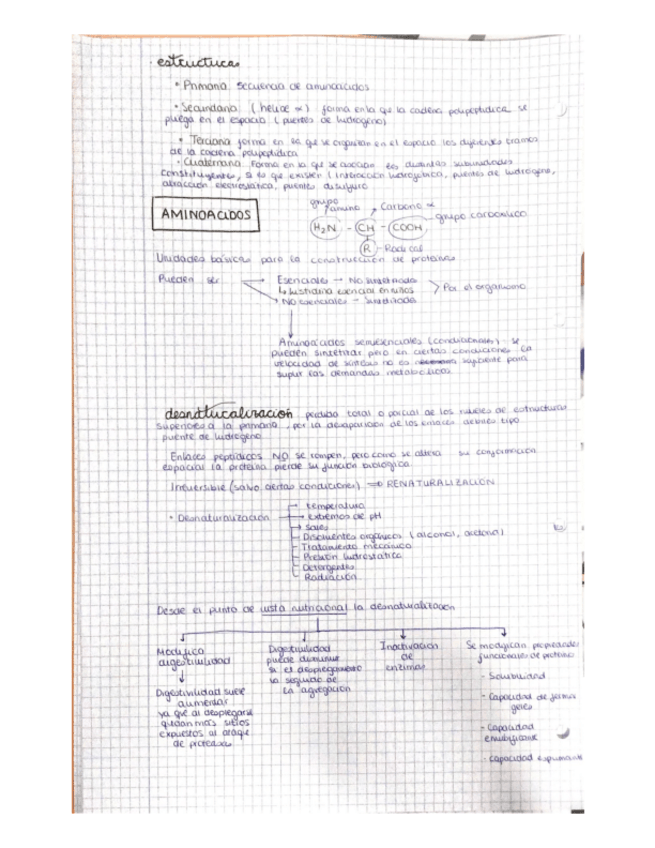 · estructura
• Primaria: secuencia de aminoácidos
• Secundaria: (hélice α) forma en la que la cadena polipeptídica se
pliega en el espacio (puentes de hidrógeno)
• Terciaria forma en la que se organizan en el espacio los diferentes tramos
de la cadena polipeptídica
• Cuaternaria: forma en la que se asocian las distintas subunidades
constituyentes, si es que existen (interacción hidrofóbica, puentes de hidrógeno,
atracción electrostática, puentes disulfuro
AMINOACIDOS
grupo amino
Carbono α
grupo carboxílico
H₂N - CH - COOH
R - Radical
Unidades básicas para la construcción de proteínas
Pueden ser → Esenciales → No sintetizados
↳ histidina esencial en niños
> Por el organismo
→ No esenciales → Sintetizados
Aminoácidos semiesenciales (condicionales) → se
pueden sintetizar pero en ciertas condiciones la
velocidad de síntesis no es suficiente para
suplir las demandas metabólicas
desnaturalización pérdida total o parcial de los niveles de estructuras
superiores a la primaria, por la desaparición de los enlaces débiles tipo
puente de hidrógeno
Enlaces peptídicos NO se rompen, pero como se altera su conformación
espacial la proteína pierde su función biológica
Irreversible (salvo ciertas condiciones) ⇒ RENATURALIZACION
• Desnaturalización → temperatura
→ extremos de pH
→ Sales
Disolventes orgánicos (alcohol, acetona)
Tratamiento mecánico
Presión hidrostática
Detergentes
Radiación
Desde el punto de vista nutricional la desnaturalización
Modifica
digestibilidad
Digestibilidad suele
aumentar
ya que al desplegarse
quedan más sitios
expuestos al ataque
de proteasas
Digestibilidad
puede disminuir
si el desplegamiento
va seguido de
la agregación
Inactivación
de
enzimas
Se modifican propiedades
funcionales de proteína
- Solubilidad
- Capacidad de formar
geles
- Capacidad
emulsificante
- Capacidad espumante